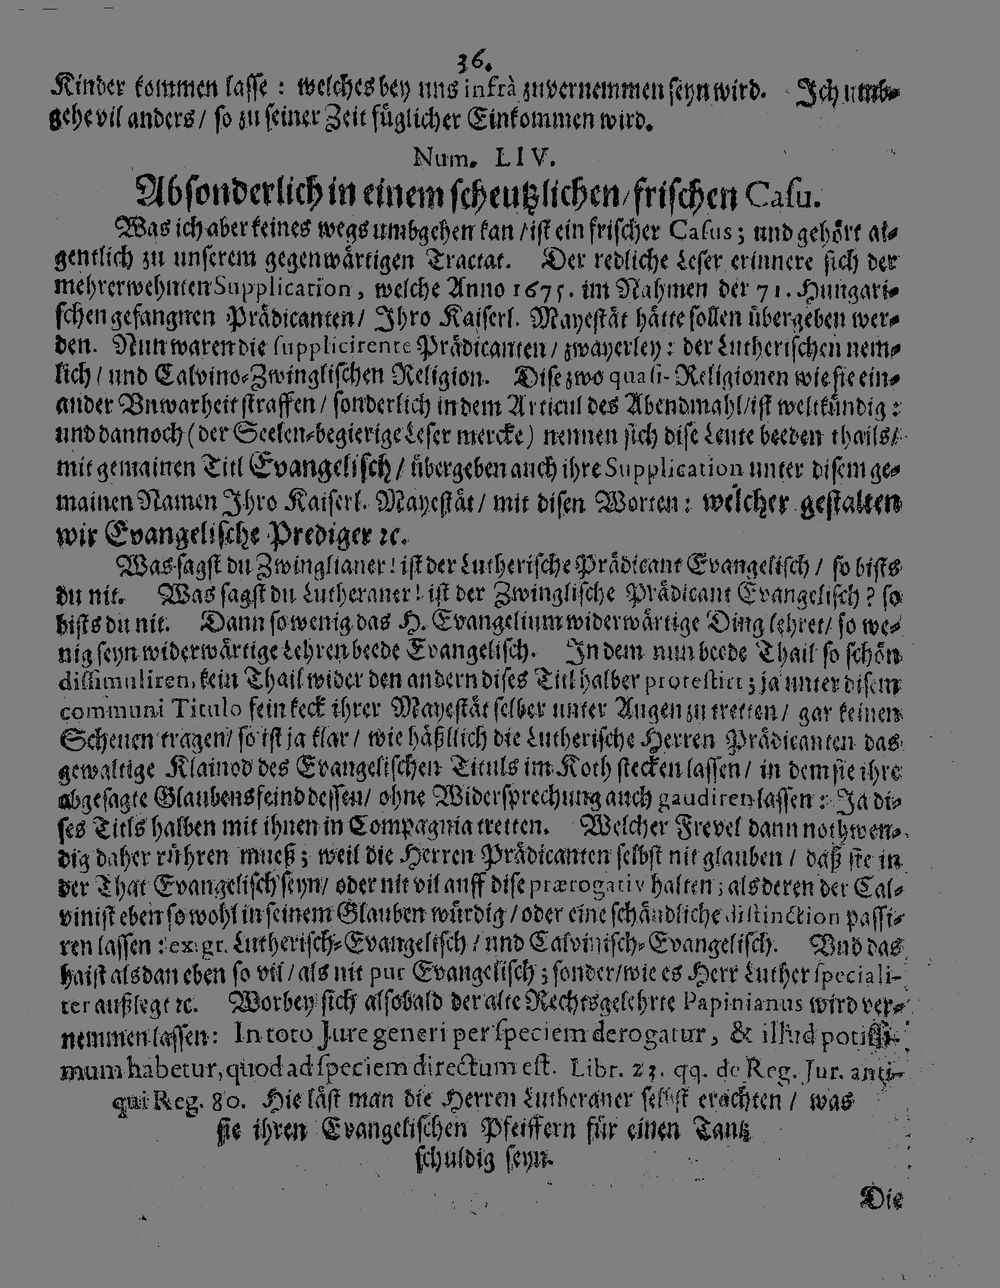 36.
Kinder kommen lasse : welches bey uns infrà zuvernemmen seyn wird. Ich umb-
gehe vil anders / so zu seiner Zeit füglicher Einkommen wird.
Num. LIV.
Absonderlich in einem scheutzlichen / frischen Casu.
Was ich aber keines wegs umbgehen kan / ist ein frischer Casus ; und gehört ai-
gentlich zu unserem gegenwärtigen Tractat. Der redliche Leser erinnere sich der
mehrerwehnten Supplication, welche Anno 1675. im Nahmen der 71. Hungari-
schen gefangnen Prädicanten / Ihro Kaiserl. Mayestät hätte sollen übergeben wer-
den. Nun waren die supplicirente Prädicanten / zwayerley : der Lutherischen nem-
lich / und Calvino-Zwinglischen Religion. Dise zwo quasi-Religionen wie sie ein-
ander Vnwarheit straffen / sonderlich in dem Articul des Abendmahl / ist weltkündig :
und dannoch (der Seelen-begierige Leser mercke) nennen sich dise Leute beeden thails /
mit gemainen Titl Evangelisch / übergeben auch ihre Supplication unter disem ge-
mainen Namen Ihro Kaiserl. Mayestät / mit disen Worten : welcher gestalten
wir Evangelische Prediger ꝛc.
Was sagst du Zwinglianer ! ist der Lutherische Prädicant Evangelisch / so bists
du nit. Was sagst du Lutheraner ! ist der Zwinglische Prädicant Evangelisch ? so
bists du nit. Dann so wenig das H. Evangelium widerwärtige Ding lehret / so we-
nig seyn widerwärtige Lehren beede Evangelisch. In dem nun beede Thail so schön
dissimuliren, kein Thail wider den andern dises Titl halber protestirt ; ja unter disem
communi Titulo fein keck ihrer Mayestät selber unter Augen zu tretten / gar keinen
Scheuen tragen / so ist ja klar / wie häßllich die Lutherische Herren Prädicanten das
gewaltige Klainod des Evangelischen Tituls im Koth stecken lassen / in dem sie ihre
abgesagte Glaubensfeind dessen / ohne Widersprechung auch gaudiren lassen : Ja di-
ses Titls halben mit ihnen in Compagnia tretten. Welcher Frevel dann nothwen-
dig daher rühren mueß ; weil die Herren Prädicanten selbst nit glauben / daß sie in
der That Evangelisch seyn / oder nit vil auff dise prærogativ halten ; als deren der Cal-
vinist eben so wohl in seinem Glauben würdig / oder eine schändliche distinction passi-
ren lassen : ex. gr. Lutherisch-Evangelisch / und Calvinisch-Evangelisch. Vnd das
haist alsdan eben so vil / als nit pur Evangelisch ; sonder / wie es Herr Luther speciali-
ter außlegt ꝛc. Worbey sich alsobald der alte Rechtsgelehrte Papinianus wird ver-
nemmen lassen : In toto Jure generi per speciem derogatur, & illud potissi-
mum habetur, quod ad speciem directum est. Libr. 23. qq. de Reg. Jur. anti-
qui Reg. 80. Hie läst man die Herren Lutheraner selbst erachten / was
sie ihren Evangelischen Pfeiffern für einen Tantz
schuldig seyn.
Die